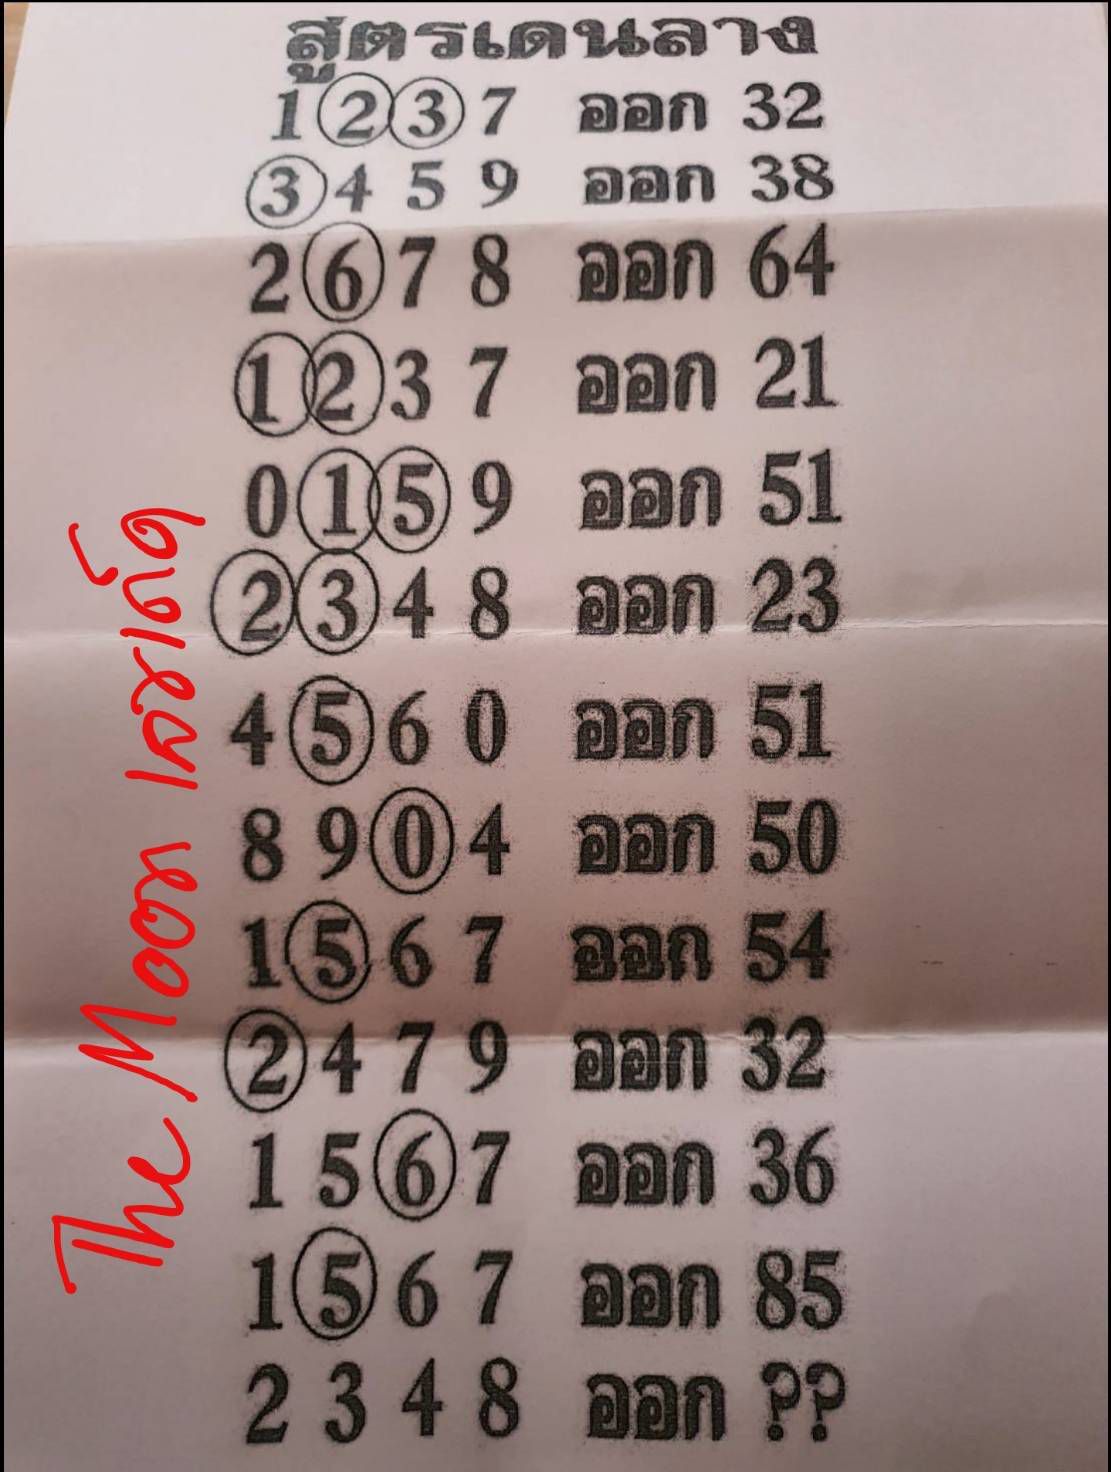 สูตรเด่นล่าง
1 2 3 7 ออก 32
3 4 5 9 ออก 38
2 6 7 8 ออก 64
1 2 3 7 ออก 21
0 1 5 9 ออก 51
2 3 4 8 ออก 23
4 5 6 0 ออก 51
8 9 0 4 ออก 50
1 5 6 7 ออก 54
2 4 7 9 ออก 32
1 5 6 7 ออก 36
1 5 6 7 ออก 85
2 3 4 8 ออก ??
The Moon เลขเด็ด